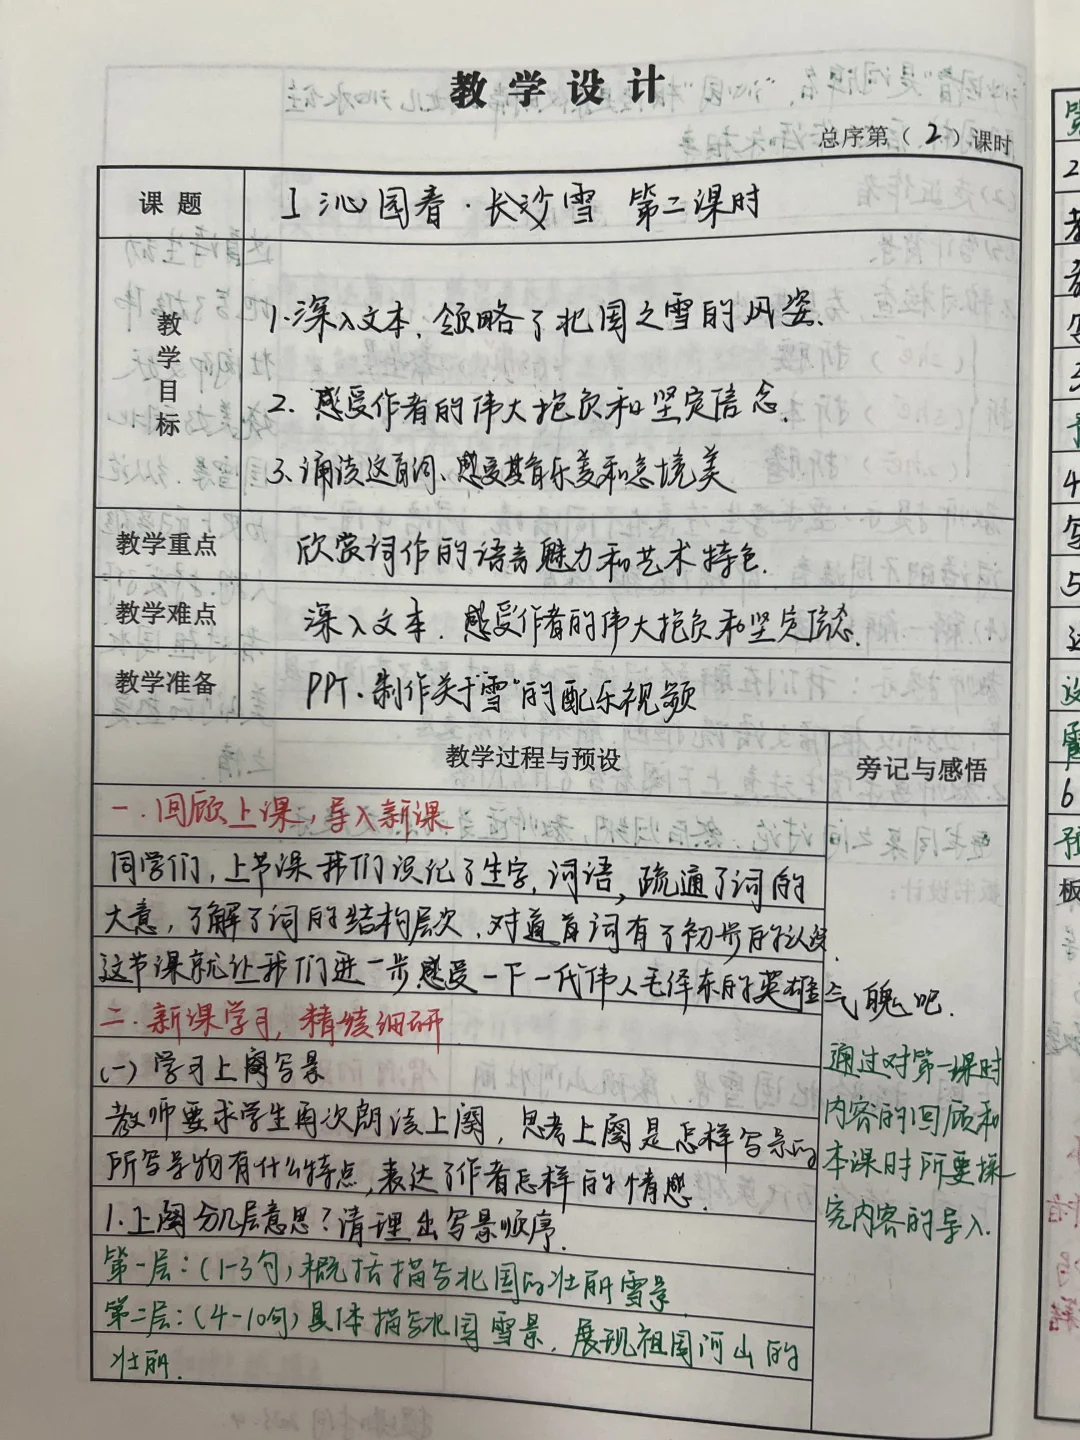 教学设计
总序第（2）课时
课题
1 沁园春·长沙雪 第二课时
教学目标
1.深入文本，领略了北国之雪的风姿.
2. 感受作者的伟大抱负和坚定信念.
3.诵读这首词、感受其音乐美和意境美
教学重点
欣赏词作的语言魅力和艺术特色.
教学难点
深入文本．感受作者的伟大抱负和坚定信念.
教学准备
PPT．制作关于"雪"的配乐视频
教学过程与预设
旁记与感悟
一．回顾上课，导入新课
同学们，上节课我们识记了生字，词语，疏通了词的
大意，了解了词的结构层次，对这首词有了初步的认识.
这节课就让我们进一步感受一下一代伟人毛泽东的英雄气魄吧.
二．新课学习，精读细研
(一)学习上阕写景
教师要求学生再次朗读上阕，思考上阕是怎样写景的
所写景物有什么特点，表达了作者怎样的情感.
1.上阕分几层意思？请理出写景顺序.
第一层：(1-3句)概括描写北国的壮丽雪景.
第二层：(4-10句)具体描写北国雪景，展现祖国河山的
壮丽.
通过对第一课时
内容的回顾和
本课时所要探
究内容的导入.
2
4
5
6
板